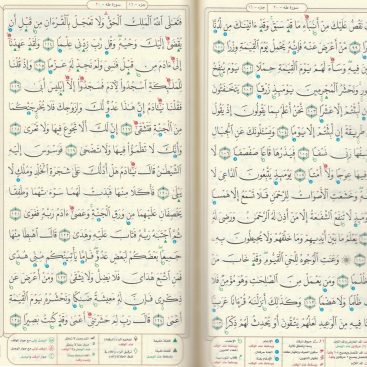 جزء ١٦ سورة طه ٢٠
نَقُصُّ عَلَيْكَ مِنْ أَنۢبَآءِ مَا قَدْ سَبَقَ وَقَدْ ءَاتَيْنَٰكَ مِن لَّدُنَّا
مَّنْ أَعْرَضَ عَنْهُ فَإِنَّهُۥ يَحْمِلُ يَوْمَ ٱلْقِيَٰمَةِ وِزْرًا ١٠٠
فِيهِ وَسَآءَ لَهُمْ يَوْمَ ٱلْقِيَٰمَةِ حِمْلًا ١٠١ يَوْمَ يُنفَخُ
وَنَحْشُرُ ٱلْمُجْرِمِينَ يَوْمَئِذٍ زُرْقًا ١٠٢ يَتَخَٰفَتُونَ
لَّبِثْتُمْ إِلَّا عَشْرًا ١٠٣ نَّحْنُ أَعْلَمُ بِمَا يَقُولُونَ إِذْ يَقُولُ
طَرِيقَةً إِن لَّبِثْتُمْ إِلَّا يَوْمًا ١٠٤ وَيَسْـَٔلُونَكَ عَنِ ٱلْجِبَالِ
رَبِّى نَسْفًا ١٠٥ فَيَذَرُهَا قَاعًا صَفْصَفًا ١٠٦
عِوَجًا وَلَآ أَمْتًا ١٠٧ يَوْمَئِذٍ يَتَّبِعُونَ ٱلدَّاعِىَ لَا
وَخَشَعَتِ ٱلْأَصْوَاتُ لِلرَّحْمَٰنِ فَلَا تَسْمَعُ إِلَّا هَمْسًا
لَّا تَنفَعُ ٱلشَّفَٰعَةُ إِلَّا مَنْ أَذِنَ لَهُ ٱلرَّحْمَٰنُ وَرَضِىَ لَهُۥ
يَعْلَمُ مَا بَيْنَ أَيْدِيهِمْ وَمَا خَلْفَهُمْ وَلَا يُحِيطُونَ بِهِۦ
وَعَنَتِ ٱلْوُجُوهُ لِلْحَىِّ ٱلْقَيُّومِ وَقَدْ خَابَ مَنْ
ظُلْمًا ١١١ وَمَن يَعْمَلْ مِنَ ٱلصَّٰلِحَٰتِ وَهُوَ مُؤْمِنٌ فَلَا
ظُلْمًا وَلَا هَضْمًا ١١٢ وَكَذَٰلِكَ أَنزَلْنَٰهُ قُرْءَانًا عَرَبِيًّا
فِيهِ مِنَ ٱلْوَعِيدِ لَعَلَّهُمْ يَتَّقُونَ أَوْ يُحْدِثُ لَهُمْ ذِكْرًا ١١٣
جزء ١٦ سورة طه ٢٠
فَتَعَٰلَى ٱللَّهُ ٱلْمَلِكُ ٱلْحَقُّ وَلَا تَعْجَلْ بِٱلْقُرْءَانِ مِن قَبْلِ أَن
يُقْضَىٰٓ إِلَيْكَ وَحْيُهُۥ وَقُل رَّبِّ زِدْنِى عِلْمًا ١١٤ وَلَقَدْ عَهِدْنَآ
إِلَىٰٓ ءَادَمَ مِن قَبْلُ فَنَسِىَ وَلَمْ نَجِدْ لَهُۥ عَزْمًا ١١٥ وَإِذْ قُلْنَا
لِلْمَلَٰٓئِكَةِ ٱسْجُدُوا۟ لِءَادَمَ فَسَجَدُوٓا۟ إِلَّآ إِبْلِيسَ أَبَىٰ ١١٦
فَقُلْنَا يَٰٓـَٔادَمُ إِنَّ هَٰذَا عَدُوٌّ لَّكَ وَلِزَوْجِكَ فَلَا يُخْرِجَنَّكُمَا
مِنَ ٱلْجَنَّةِ فَتَشْقَىٰٓ ١١٧ إِنَّ لَكَ أَلَّا تَجُوعَ فِيهَا وَلَا تَعْرَىٰ ١١٨
وَأَنَّكَ لَا تَظْمَؤُا۟ فِيهَا وَلَا تَضْحَىٰ ١١٩ فَوَسْوَسَ إِلَيْهِ
ٱلشَّيْطَٰنُ قَالَ يَٰٓـَٔادَمُ هَلْ أَدُلُّكَ عَلَىٰ شَجَرَةِ ٱلْخُلْدِ وَمُلْكٍ لَّا
يَبْلَىٰ ١٢٠ فَأَكَلَا مِنْهَا فَبَدَتْ لَهُمَا سَوْءَٰتُهُمَا وَطَفِقَا
يَخْصِفَانِ عَلَيْهِمَا مِن وَرَقِ ٱلْجَنَّةِ وَعَصَىٰٓ ءَادَمُ رَبَّهُۥ فَغَوَىٰ ١٢١
ثُمَّ ٱجْتَبَٰهُ رَبُّهُۥ فَتَابَ عَلَيْهِ وَهَدَىٰ ١٢٢ قَالَ ٱهْبِطَا مِنْهَا
جَمِيعًۢا بَعْضُكُمْ لِبَعْضٍ عَدُوٌّ فَإِمَّا يَأْتِيَنَّكُم مِّنِّى هُدًى
فَمَنِ ٱتَّبَعَ هُدَاىَ فَلَا يَضِلُّ وَلَا يَشْقَىٰ ١٢٣ وَمَنْ أَعْرَضَ عَن
ذِكْرِى فَإِنَّ لَهُۥ مَعِيشَةً ضَنكًا وَنَحْشُرُهُۥ يَوْمَ ٱلْقِيَٰمَةِ
أَعْمَىٰ ١٢٤ قَالَ رَبِّ لِمَ حَشَرْتَنِىٓ أَعْمَىٰ وَقَدْ كُنتُ بَصِيرًا ١٢٥